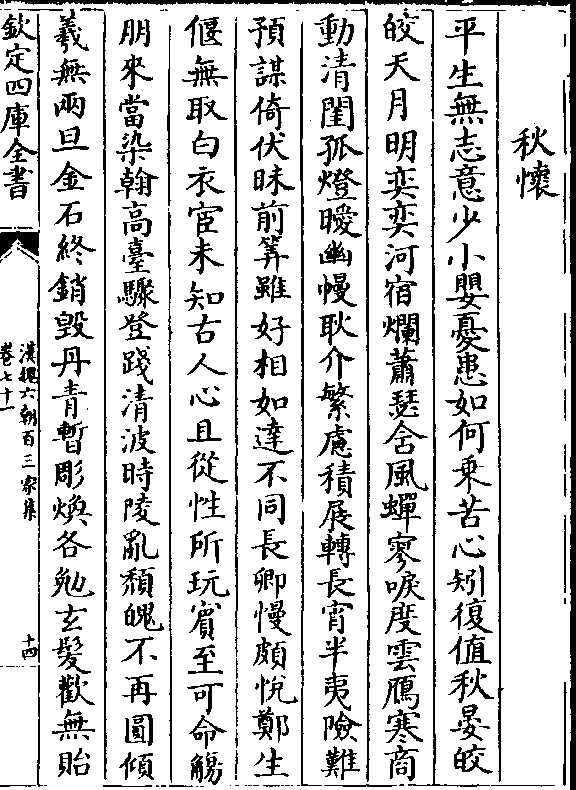 秋懷
平生無志意少小嬰憂患如何乘苦心矧復值秋晏皎
皎天月明奕奕河宿爛蕭瑟含風蟬寥唳度雲鴈寒商
動清閨孤燈曖幽幔耿介繁慮積展轉長宵半夷險難
預謀倚伏昧前筭雖好相如達不同長卿慢頗悅鄭生
偃無取白衣宦未知古人心且從性所玩賔至可命觴
朋來當染翰高臺驟登踐清波時陵亂頽魄不再圓傾
羲無兩旦金石終銷毀丹青暫彫煥各勉玄髮歡無貽
欽定四庫全書
漢魏六朝百三家集
卷七十一
十四